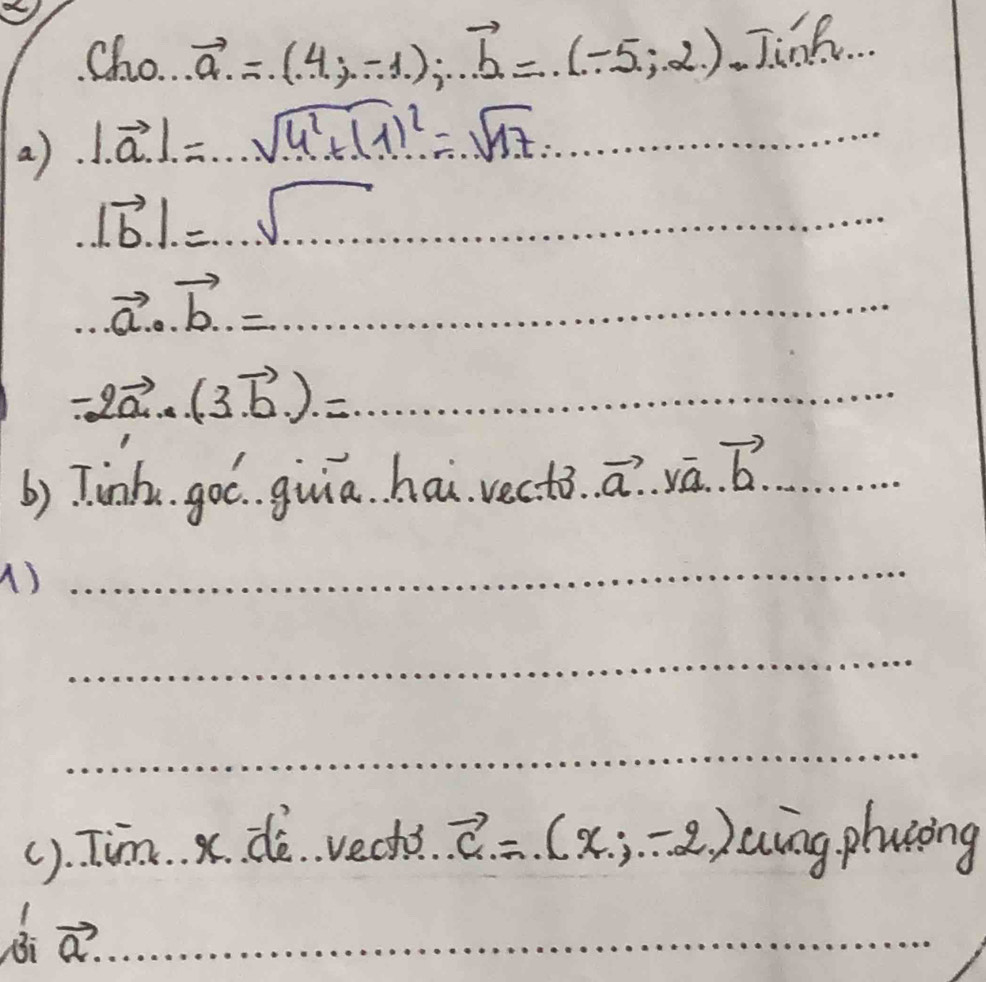 2
Cho a⃗ = (4; -1); b⃗ = (-5; 2). Tính
a) |a⃗| = √4² + (1)² = √17
|b⃗| = √
a⃗ . b⃗ =
-2a⃗ . (3b⃗) =
b) Tính góc giữa hai vectơ a⃗ và b⃗
1)
c) Tìm x để vectơ c⃗ = (x; -2) cùng phương
với a⃗